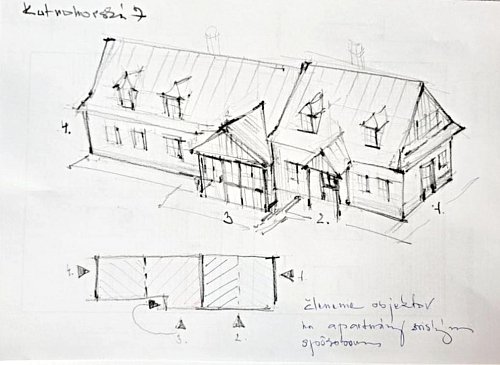 Kutnohorská 7
4.
3
2.
1.
4.
1.
3.
2.
členenie objektov
na apartmány
spôsobom